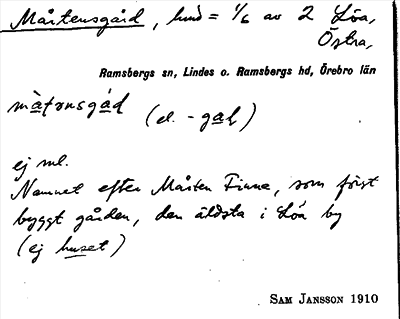 Mårtensgård, hmd = 1/6 av 2 Löa,
Östra,
Ramsbergs sn, Lindes o. Ramsbergs hd, Örebro län
màtənsgád
(el. -gaḷ)
ej ml.
Namnet efter Mårten Finne, som först
byggt gården, den äldsta i Löa by
(ej huset)
SAM JANSSON 1910